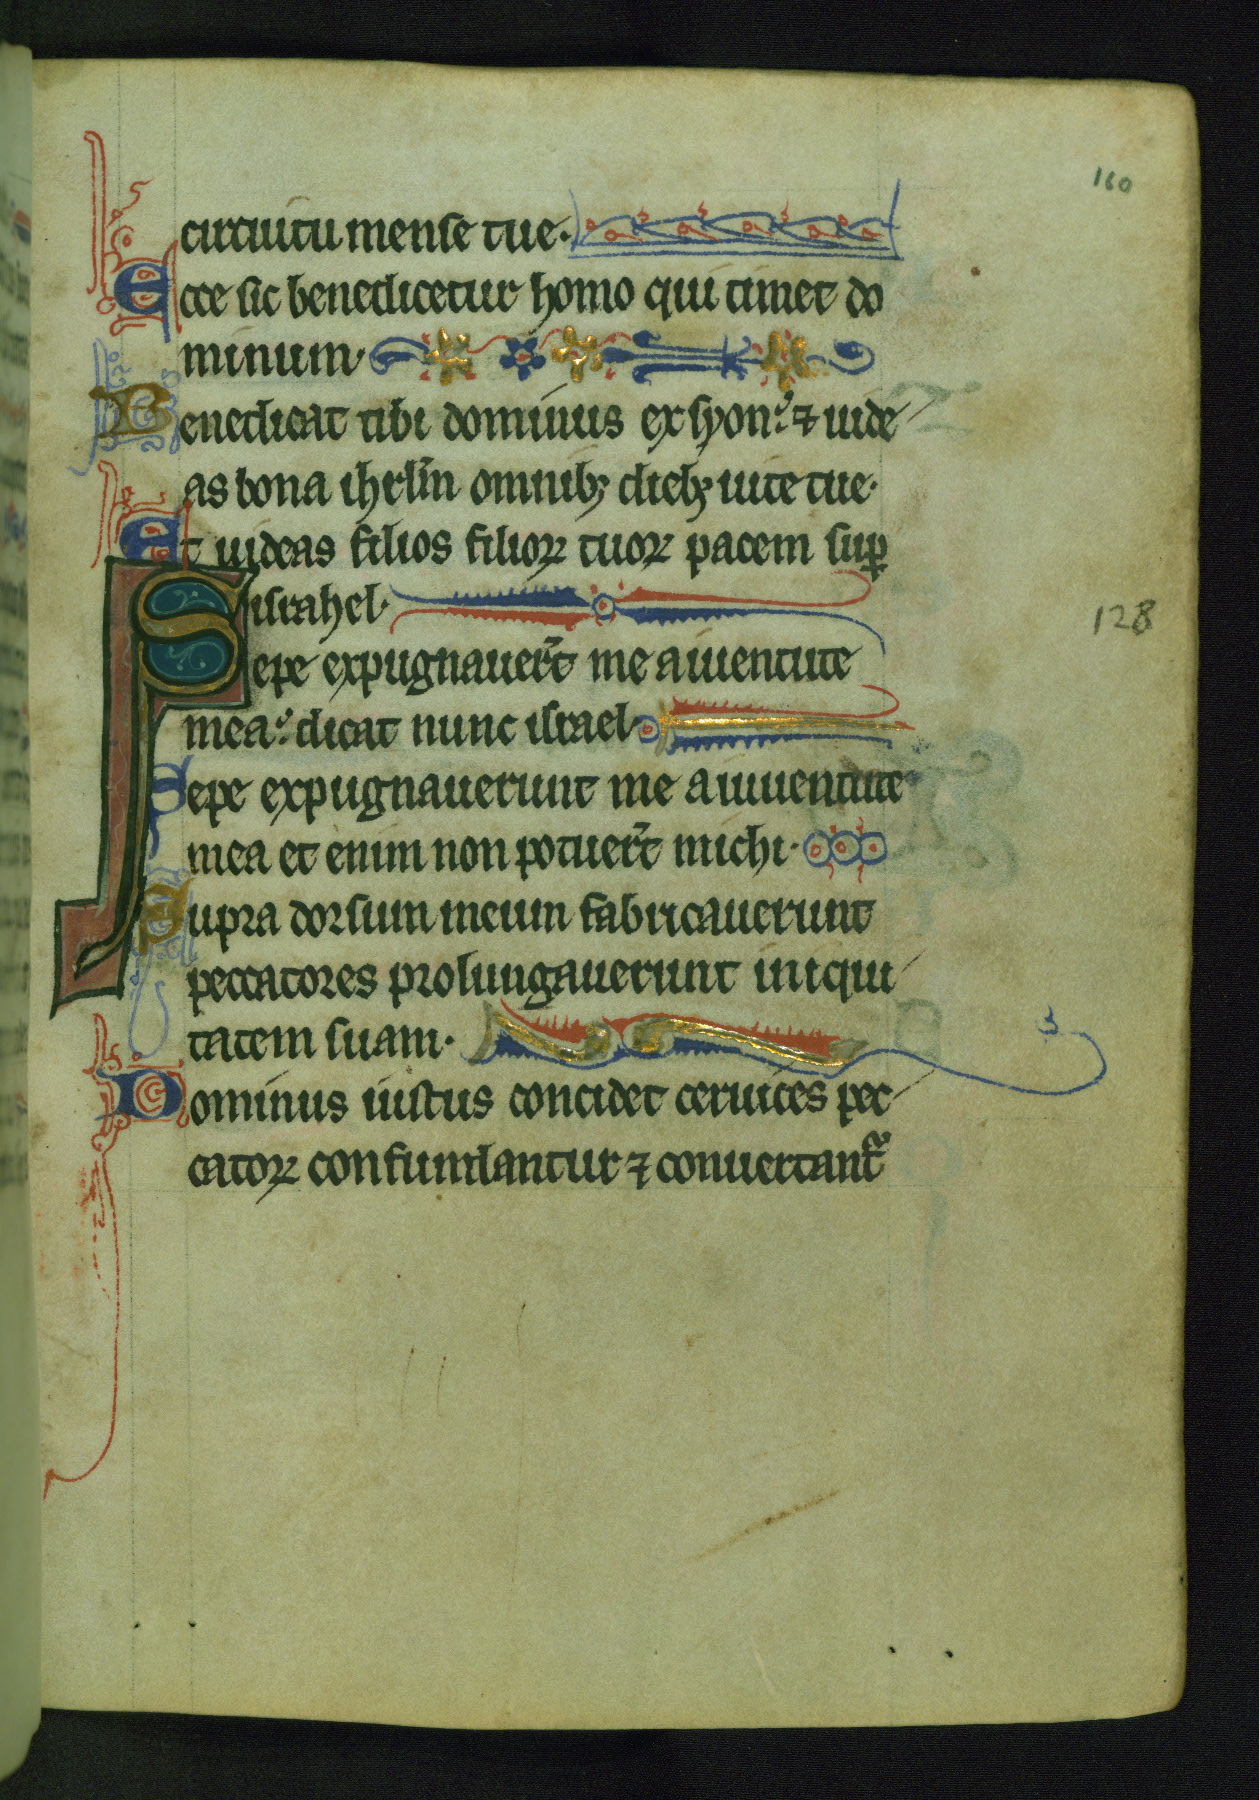 160
circuitu mense tue·
Ecce sic benedicetur homo qui timet do
minum·
Benedicat tibi dominus ex syon: ⁊ uide
as bona ihrl̄m omnibꝫ diebꝫ uite tue·
Et uideas filios filioꝝ tuoꝝ pacem suꝑ
israhel·
128
Sepe expugnauer̄t me a iuuentute
mea: dicat nunc israel·
Sepe expugnauerunt me a iuuuentute
mea et enim non potuer̄t michi·
Supra dorsum meum fabricauerunt
peccatores prolungauerunt iniqui
tatem suam·
Dominus iustus concidet ceruices pec
catoꝝ confundantur ⁊ conuertant᷑